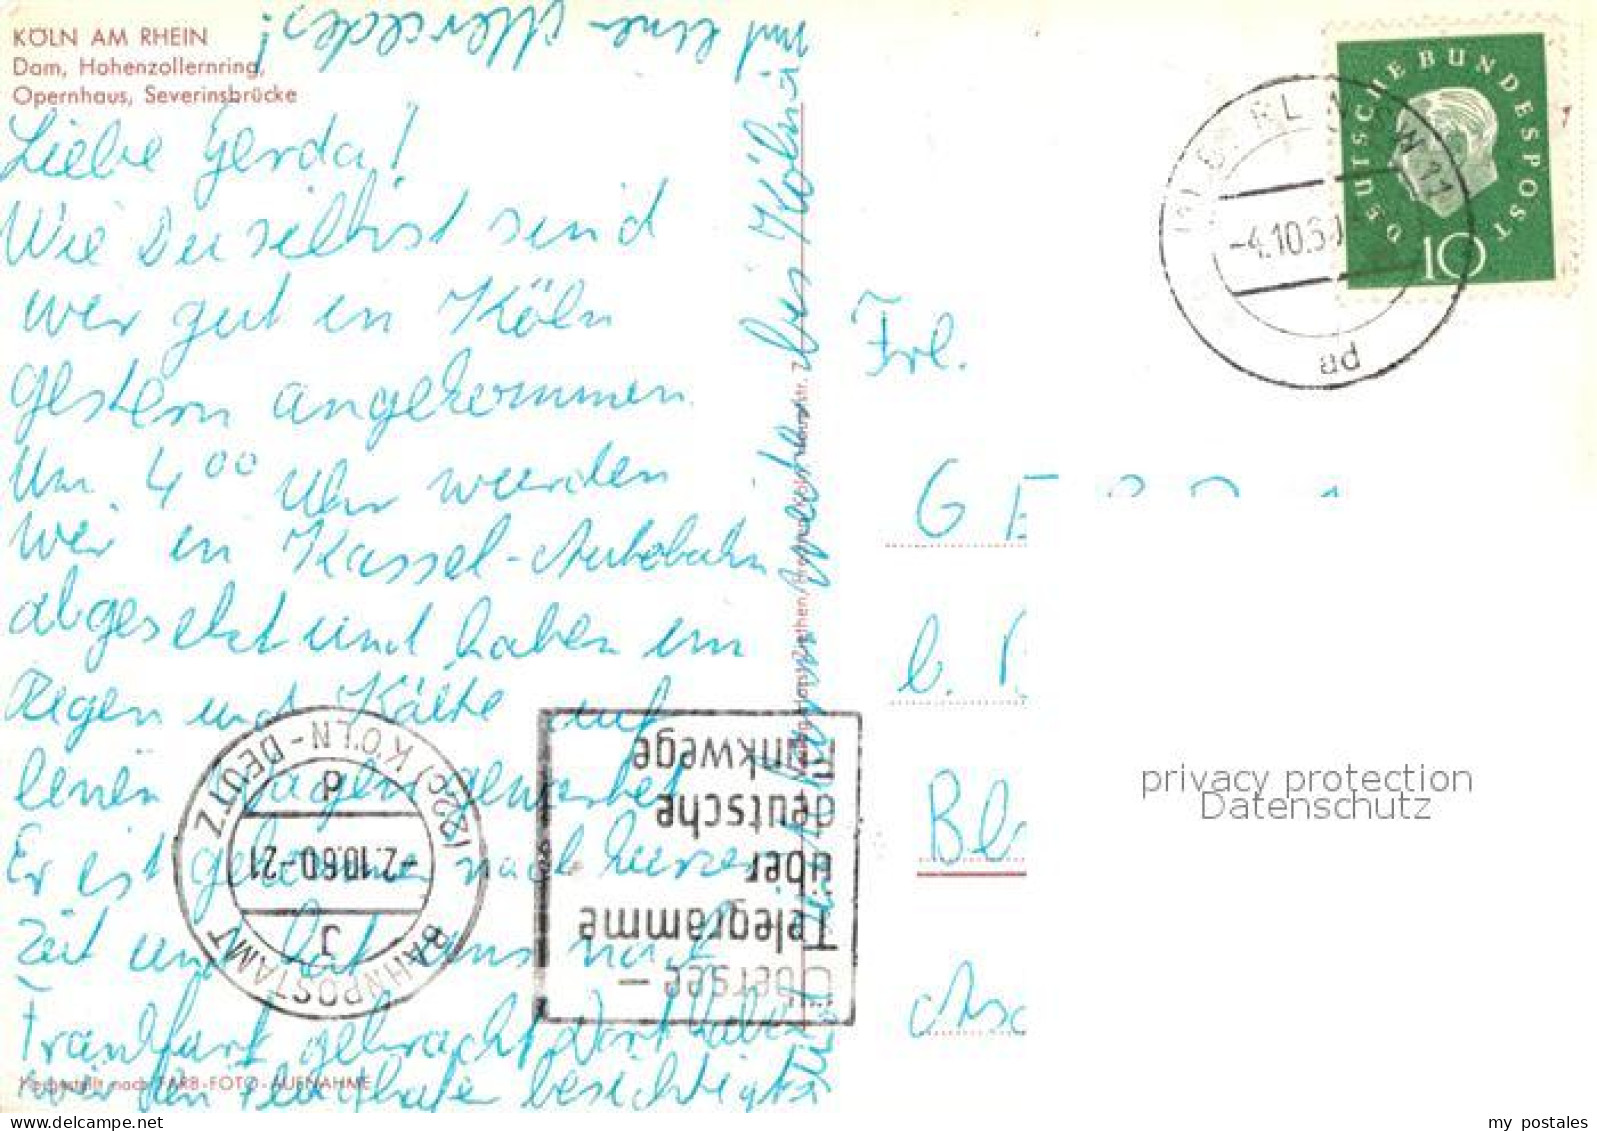 KÖLN AM RHEIN
Dom, Hohenzollernring,
Opernhaus, Severinsbrücke
Liebe Gerda!
Wie Du siehst sind
wir gut in Köln
gestern angekommen.
Um 4⁰⁰ Uhr wurden
wir in Kassel-Autobahn
abgesetzt und haben im
Regen und Kälte auf
einen Wagen gewartet
Er ist gekommen nach kurzer
Zeit und hat uns nach
Frankfurt gebracht Dort haben
wir den Flughafe besichtigt
bis Köln
mit einen Mercedes!
Hergestellt nach FARB-FOTO-AUFNAHME
(22c) KÖLN-DEUTZ
d
-2.10.60-21
J
BAHNPOSTAMT
Übersee-
Telegramme
über
deutsche
Funkwege
DEUTSCHE BUNDESPOST
10
BERLIN SW 11
-4.10.60
ad
Frl.
GERDA
b.
privacy protection
Datenschutz
my postales